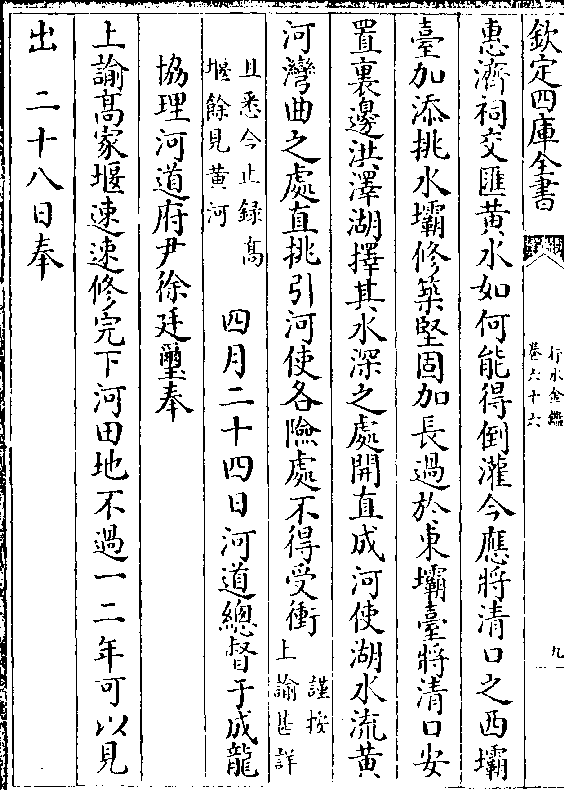 欽定四庫全書
行水金鑑
卷六十六
九
惠濟祠交匯黃水如何能得倒灌今應將清口之西壩
臺加添挑水壩修築堅固加長過於東壩臺將清口安
置裏邊洪澤湖擇其水深之處開直成河使湖水流黃
河灣曲之處直挑引河使各險處不得受衝謹按
上諭甚詳
且悉今止録髙
堰餘見黃河
四月二十四日河道總督于成龍
協理河道府尹徐廷璽奉
上諭髙家堰速速修完下河田地不過一二年可以見
出 二十八日奉